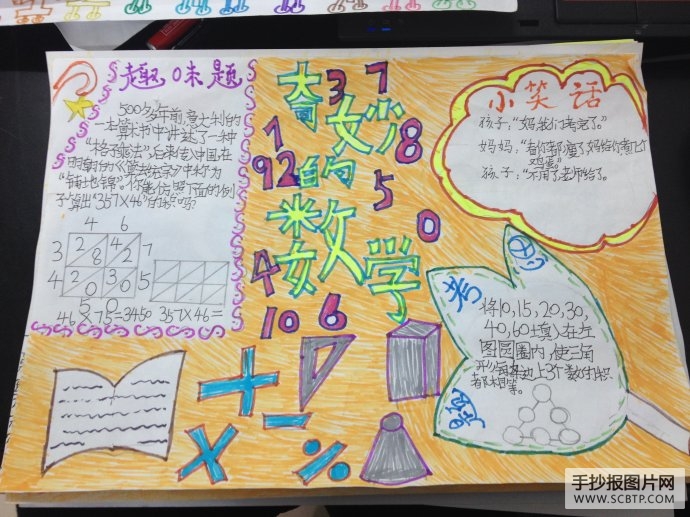 趣味题
500多年前,意大利的
一本算术书中讲述了一种
"格子乘法",后来传入中国,在
明朝的《算法统宗》中称为
"铺地锦"。你能仿照下面的例
子算出"357×46"的积吗?
4 6
3 2 8 4 2 7
4 2 0 3 0 5
5 0
46×75=3450 357×46=
奇妙的数学
3 7 1 8 92 5 0 4 10 6
小笑话
孩子:"妈我们考完了。"
妈妈:"看你都瘦了,妈给你煮几个
鸡蛋。"
孩子:"不用了,老师给了。"
思考题
将10,15,20,30,
40,60填入在左
图圆圈内,使三角
形每边上3个数的积
都相等。
手抄报图片网
WWW.SCBTP.COM